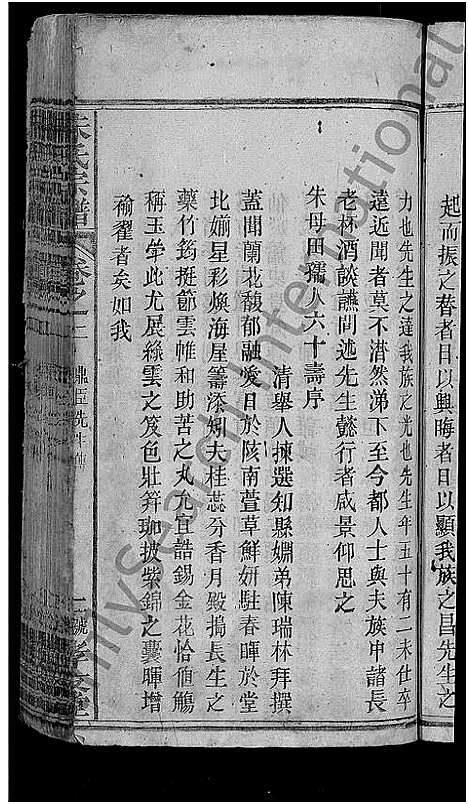 起而振之瞀者目以興晦者目以顯我族之昌先生之
力也先生之達我族之光也先生年五十有二未仕卒
遠近聞者莫不潸然涕下至今都人士與夫族中諸長
老杯酒談讌間述先生懿行者咸景仰思之
朱母田孺人六十壽序
清舉人揀選知縣姻弟陳瑞林拜撰
蓋聞蘭花馥郁融愛日於陔南萱草鮮妍駐春暉於堂
北婺星彩煥海屋籌添矧夫桂蕊分香月殿搗長生之
藥竹筠挺節雲帷和助苦之丸允宜誥錫金花恰值觴
稱玉斝此尤展綠雲之笈色壯笄珈披紫錦之囊暉增
褕翟者矣如我
朱氏宗譜
卷之二
鼎臣先生傳
二號
MySearch International